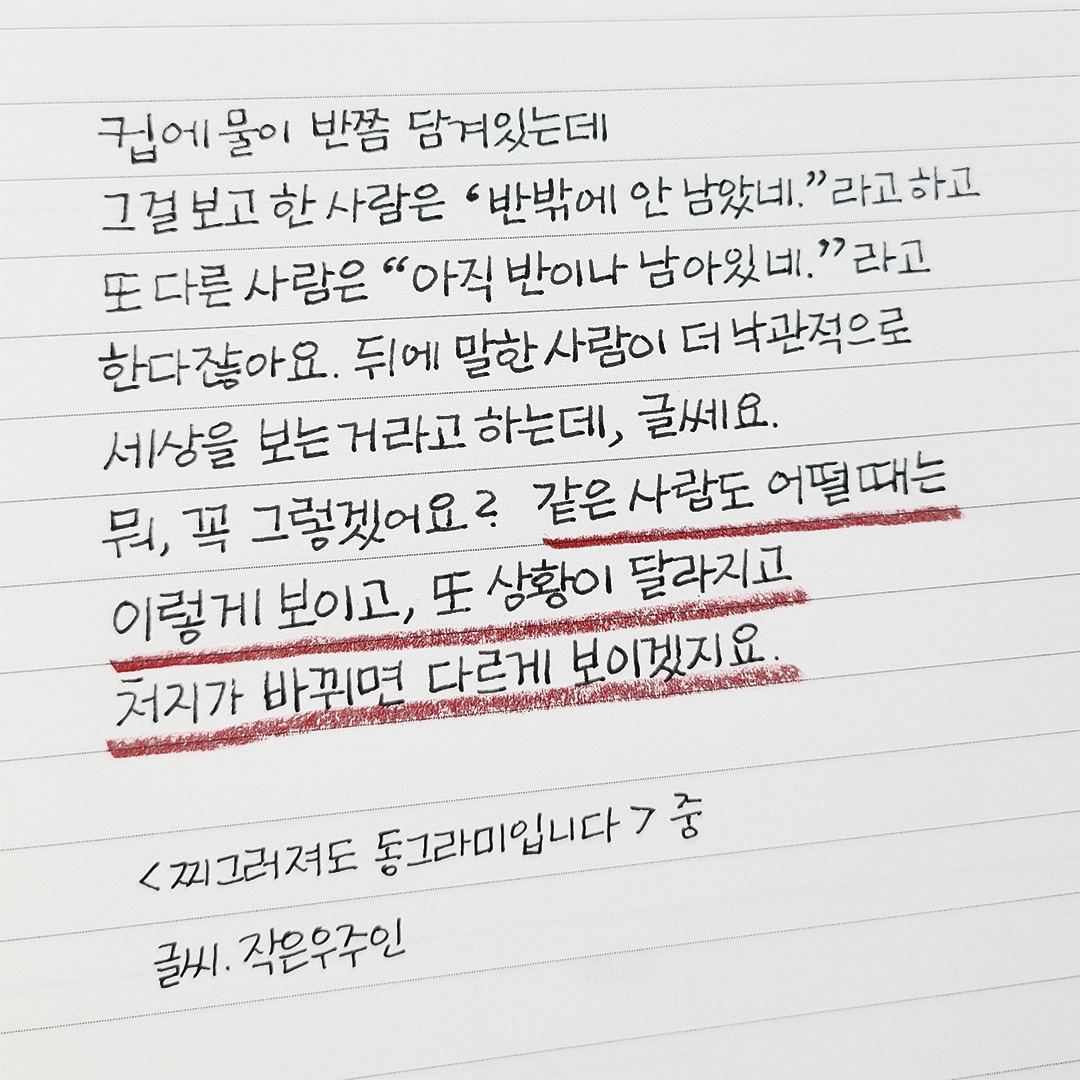 컵에 물이 반쯤 담겨있는데
그걸 보고 한 사람은 “반밖에 안 남았네.”라고 하고
또 다른 사람은 “아직 반이나 남아있네.”라고
한다잖아요. 뒤에 말한 사람이 더 낙관적으로
세상을 보는 거라고 하는데, 글쎄요.
뭐, 꼭 그렇겠어요? 같은 사람도 어떨 때는
이렇게 보이고, 또 상황이 달라지고
처지가 바뀌면 다르게 보이겠지요.
<찌그러져도 동그라미입니다> 중
글씨. 작은우주인